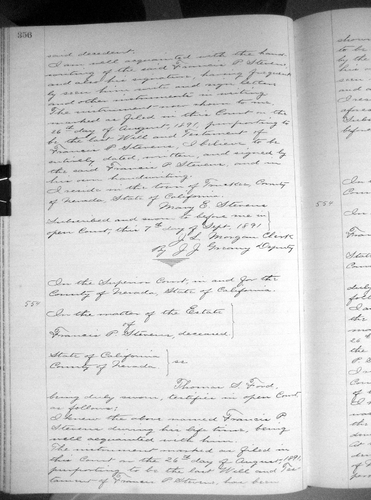 356
said decedent.
I am well acquainted with the hand
writing of the said Francis P. Stevens,
and also his signature, having frequent
ly seen him write and sign letters
and other instruments in writing.
The instrument now shown to me,
marked as filed in this Court on the
26th day of August, 1891, purporting to
be the last Will and Testament of
Francis P. Stevens, I believe to be
entirely dated, written, and signed by
the said Francis P. Stevens, and in
his own handwriting.
I reside in the town of Truckee County
of Nevada, State of California.
Mary E. Stevens
Subscribed and sworn to before me in
open Court, this 7th day of Sept. 1891
J. L. Morgan Clerk
By J. J. Greany Deputy
In the Superior Court, in and for the
County of Nevada, State of California.
554
In the matter of the Estate
of
Francis P. Stevens, deceased
State of California
County of Nevada ss
Thomas S. Ford,
being duly sworn, testifies in open Court
as follows:
I knew the above named Francis P.
Stevens during his life time, being
well acquainted with him.
The instrument marked as filed in
this Court on the 26th day of August, 1891,
purporting to be the last Will and Tes
tament of Francis P. Stevens, has been